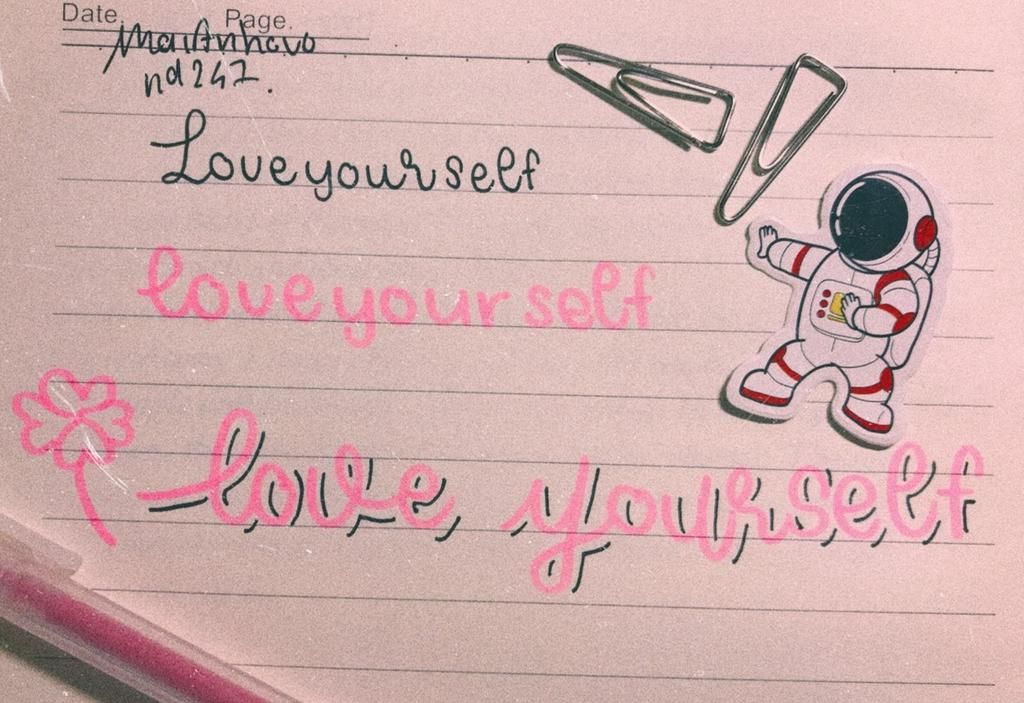 Date. Page.
nd247.
Loveyourself
loveyourself
love yourself